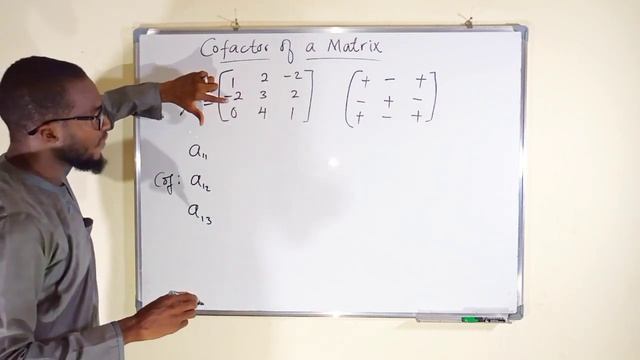 Cofactor of a Matrix
= [ 1 2 -2 ] ( + - + )
[ -2 3 2 ] ( - + - )
[ 0 4 1 ] ( + - + )
a₁₁
Cof: a₁₂
a₁₃